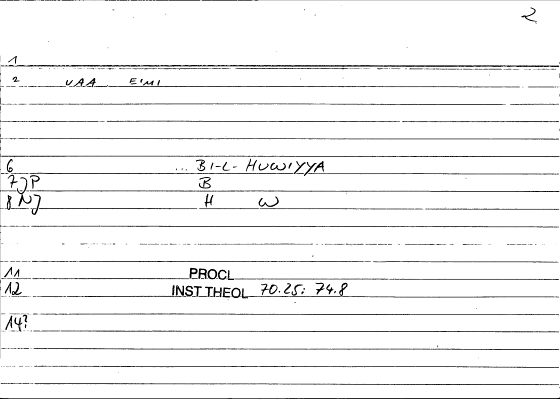 2
1
2 VAA EIMI
6 ... BI-L-HUWIYYA
7 JP B
8 NJ H W
11 PROCL
12 INST THEOL 70.25; 74.8
14?